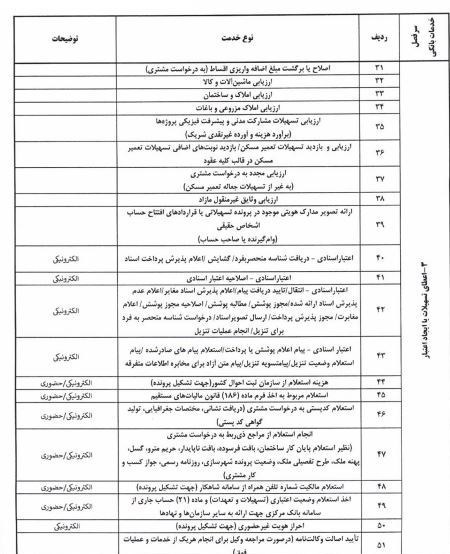 سرفصل خدمات بانکی
ردیف
نوع خدمت
توضیحات
۳-اعطای تسهیلات یا ایجاد اعتبار
۳۱ اصلاح یا برگشت مبلغ اضافه واریزی اقساط (به درخواست مشتری)
۳۲ ارزیابی ماشین‌آلات و کالا
۳۳ ارزیابی املاک و ساختمان
۳۴ ارزیابی املاک مزروعی و باغات
۳۵ ارزیابی تسهیلات مشارکت مدنی و پیشرفت فیزیکی پروژه‌ها
(برآورد هزینه و آورده غیرنقدی شریک)
۳۶ ارزیابی و بازدید تسهیلات تعمیر مسکن/ بازدید نوبت‌های اضافی تسهیلات تعمیر
مسکن در قالب کلیه عقود
۳۷ ارزیابی مجدد به درخواست مشتری
(به غیر از تسهیلات جعاله تعمیر مسکن)
۳۸ ارزیابی وثایق غیرمنقول مازاد
۳۹ ارائه تصویر مدارک هویتی موجود در پرونده تسهیلاتی یا قراردادهای افتتاح حساب
اشخاص حقیقی
(وام‌گیرنده یا صاحب حساب)
۴۰ اعتباراسنادی - دریافت شناسه منحصربفرد/ گشایش /اعلام پذیرش پرداخت اسناد الکترونیکی
۴۱ اعتباراسنادی - اصلاحیه اعتبار اسنادی الکترونیکی
۴۲ اعتباراسنادی - انتقال/تایید دریافت پیام/اعلام پذیرش اسناد مغایر/اعلام عدم
پذیرش اسناد ارائه شده/مجوز پوشش/ مطالبه پوشش/ اصلاحیه مجوز پوشش/ اعلام
مغایرت/ مجوز پذیرش پرداخت/ ارسال تصویراسناد/ درخواست شناسه منحصر به فرد
برای تنزیل/ انجام عملیات تنزیل الکترونیکی
۴۳ اعتبار اسنادی - پیام اعلام پوشش یا پرداخت/استعلام پیام های صادرشده /پیام
استعلام وضعیت تنزیل/پیام‌تسویه تنزیل/پیام متن آزاد برای مخابره اطلاعات متفرقه الکترونیکی
۴۴ هزینه استعلام از سازمان ثبت احوال کشور(جهت تشکیل پرونده) الکترونیکی/حضوری
۴۵ استعلام مربوط به اخذ فرم ماده (۱۸۶) قانون مالیات‌های مستقیم الکترونیکی/حضوری
۴۶ استعلام کدپستی به درخواست مشتری (دریافت نشانی، مختصات جغرافیایی، تولید
گواهی کد پستی) الکترونیکی/حضوری
۴۷ انجام استعلام از مراجع ذی‌ربط به درخواست مشتری
(نظیر استعلام پایان کار ساختمان، بافت فرسوده، بافت ناپایدار، حریم مترو، گسل،
پهنه ملک، طرح تفصیلی ملک، وضعیت پرونده شهرسازی، روزنامه رسمی، جواز کسب و
کار مشتری) الکترونیکی/حضوری
۴۸ استعلام مالکیت شماره تلفن همراه از سامانه شاهکار (جهت تشکیل پرونده) الکترونیکی/حضوری
۴۹ اخذ استعلام وضعیت اعتباری (تسهیلات و تعهدات) و ماده (۲۱) حساب جاری از
سامانه بانک مرکزی جهت ارائه به سایر سازمان‌ها و نهادها الکترونیکی/حضوری
۵۰ احراز هویت غیرحضوری (جهت تشکیل پرونده) الکترونیکی
۵۱ تأیید اصالت وکالت‌نامه (درصورت مراجعه وکیل برای انجام هریک از خدمات و عملیات
فوق)